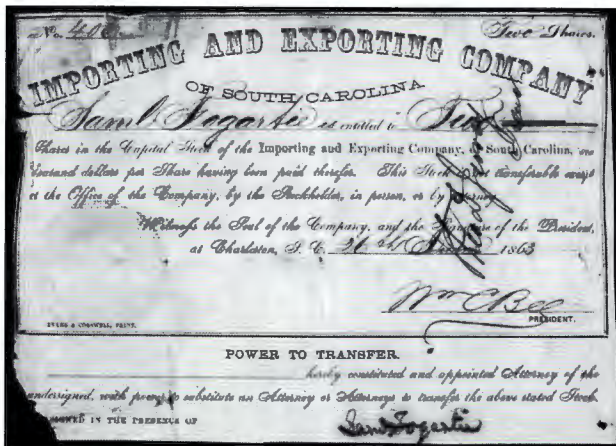 No. 406 Two Shares.
IMPORTING AND EXPORTING COMPANY
OF SOUTH CAROLINA
Saml Fogartie is entitled to Two
Shares in the Capital Stock of the Importing and Exporting Company, of South Carolina, one
thousand dollars per Share having been paid therefor. This Stock is not transferable except
at the Office of the Company, by the Stockholder, in person, or by Attorney.
Witness the Seal of the Company, and the Signature of the President,
at Charleston, S. C. 1863
Wm C Bee
PRESIDENT.
EVANS & COGSWELL, PRINT.
POWER TO TRANSFER.
hereby constituted and appointed Attorney of the
undersigned, with power to substitute an Attorney or Attorneys to transfer the above stated Stock.
SIGNED IN THE PRESENCE OF
Saml Fogartie